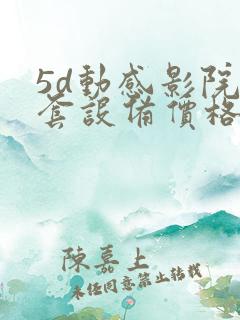 5d動感影院
套設備價格
陳嘉上
未经同意禁止转载